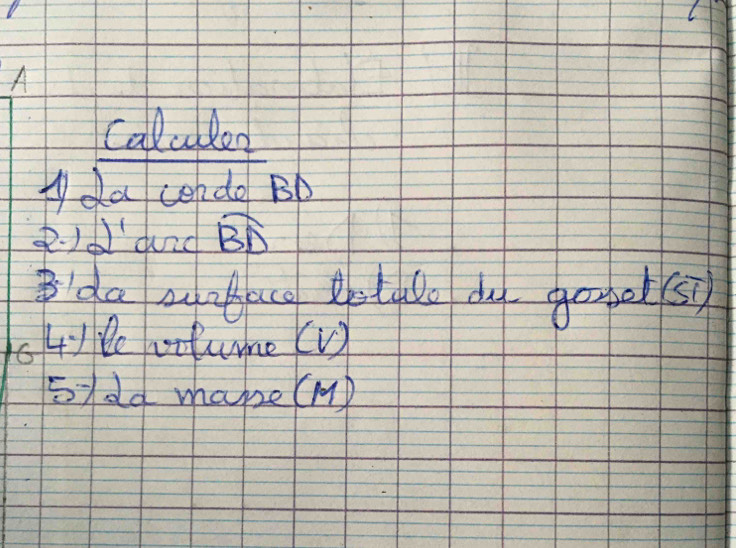 A
Calculer
1) La corde BD
2-) L'arc BD
3-) La surface totale du gousset (ST)
G
4-) le volume (V)
5-) La masse (M)